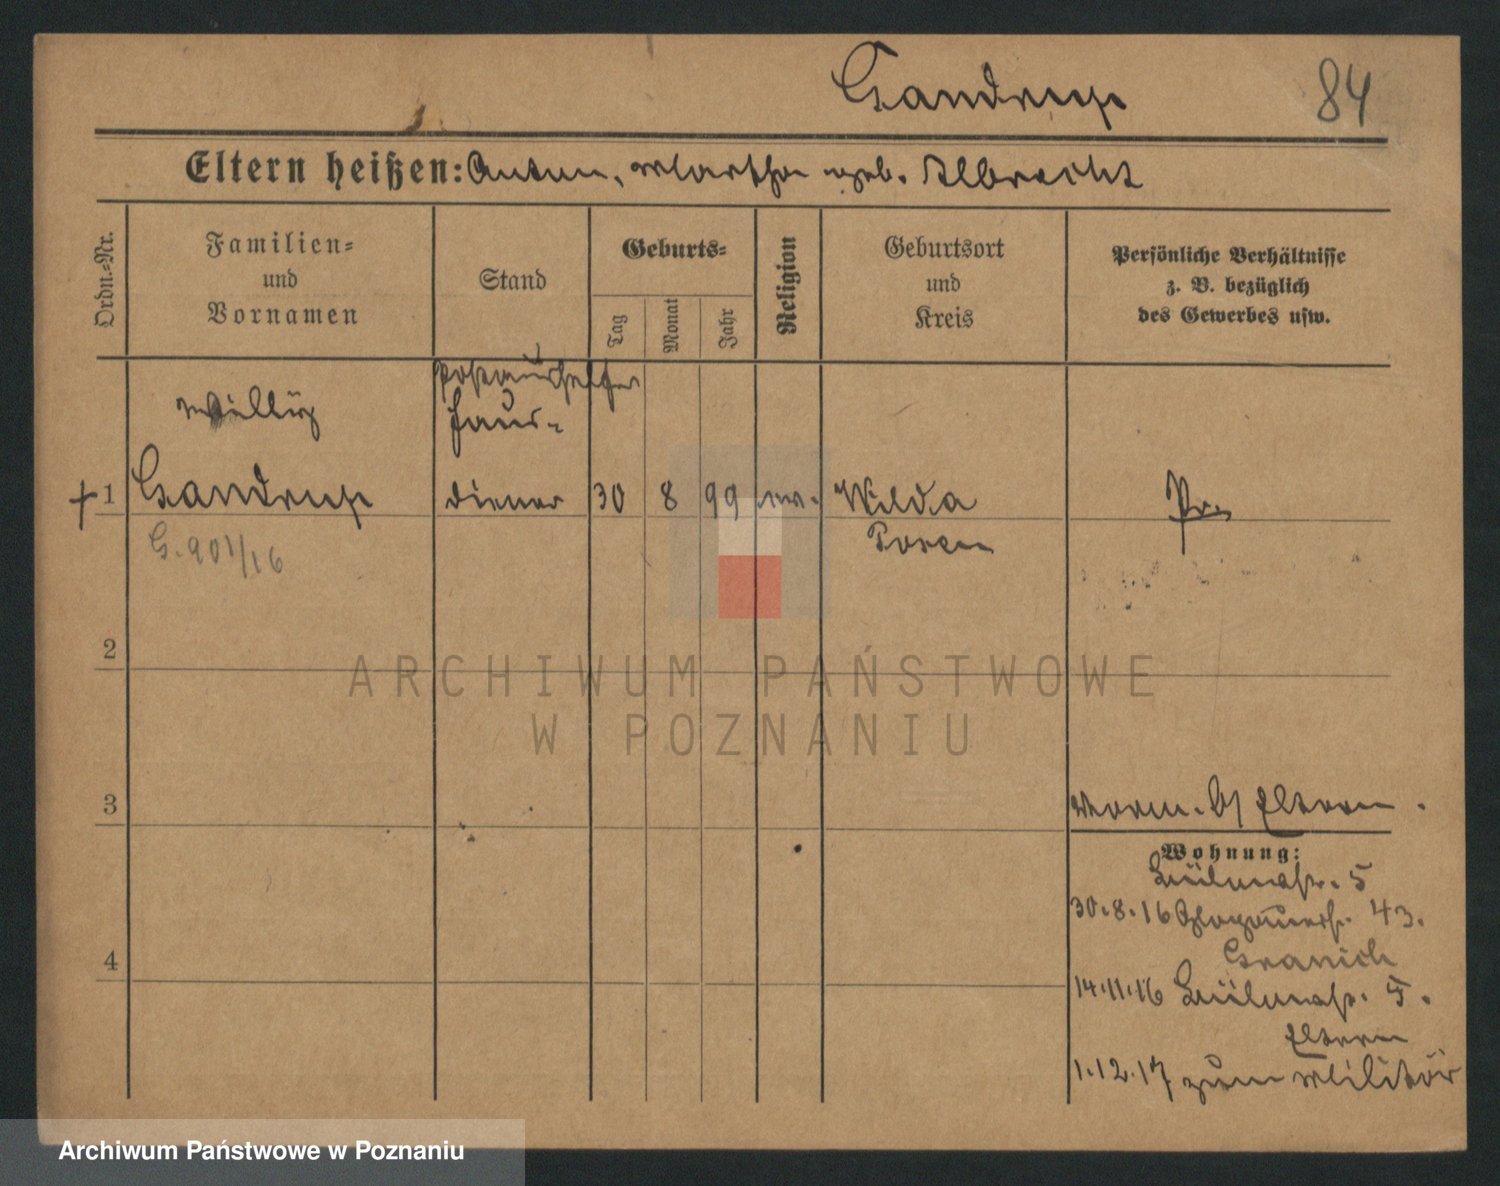 Gandrup 84
Eltern heißen: Anton, Martha geb. Albrecht
Ordn.=Nr.
Familien=
und
Vornamen
Stand
Geburts=
Tag
Monat
Jahr
Religion
Geburtsort
und
Kreis
Persönliche Verhältnisse
z. B. bezüglich
des Gewerbes usw.
Postaushelfer
Willy Haus-
1 Gandrup diener 30 8 99 ev. Wilda Pr.
G. 901/16 Posen
2
3 Eltern.
Wohnung:
5
30.8.16 Glogauerstr. 43.
4
14.11.16 5.
Eltern
1.12.17 zum Militär
ARCHIWUM PAŃSTWOWE
W POZNANIU
Archiwum Państwowe w Poznaniu